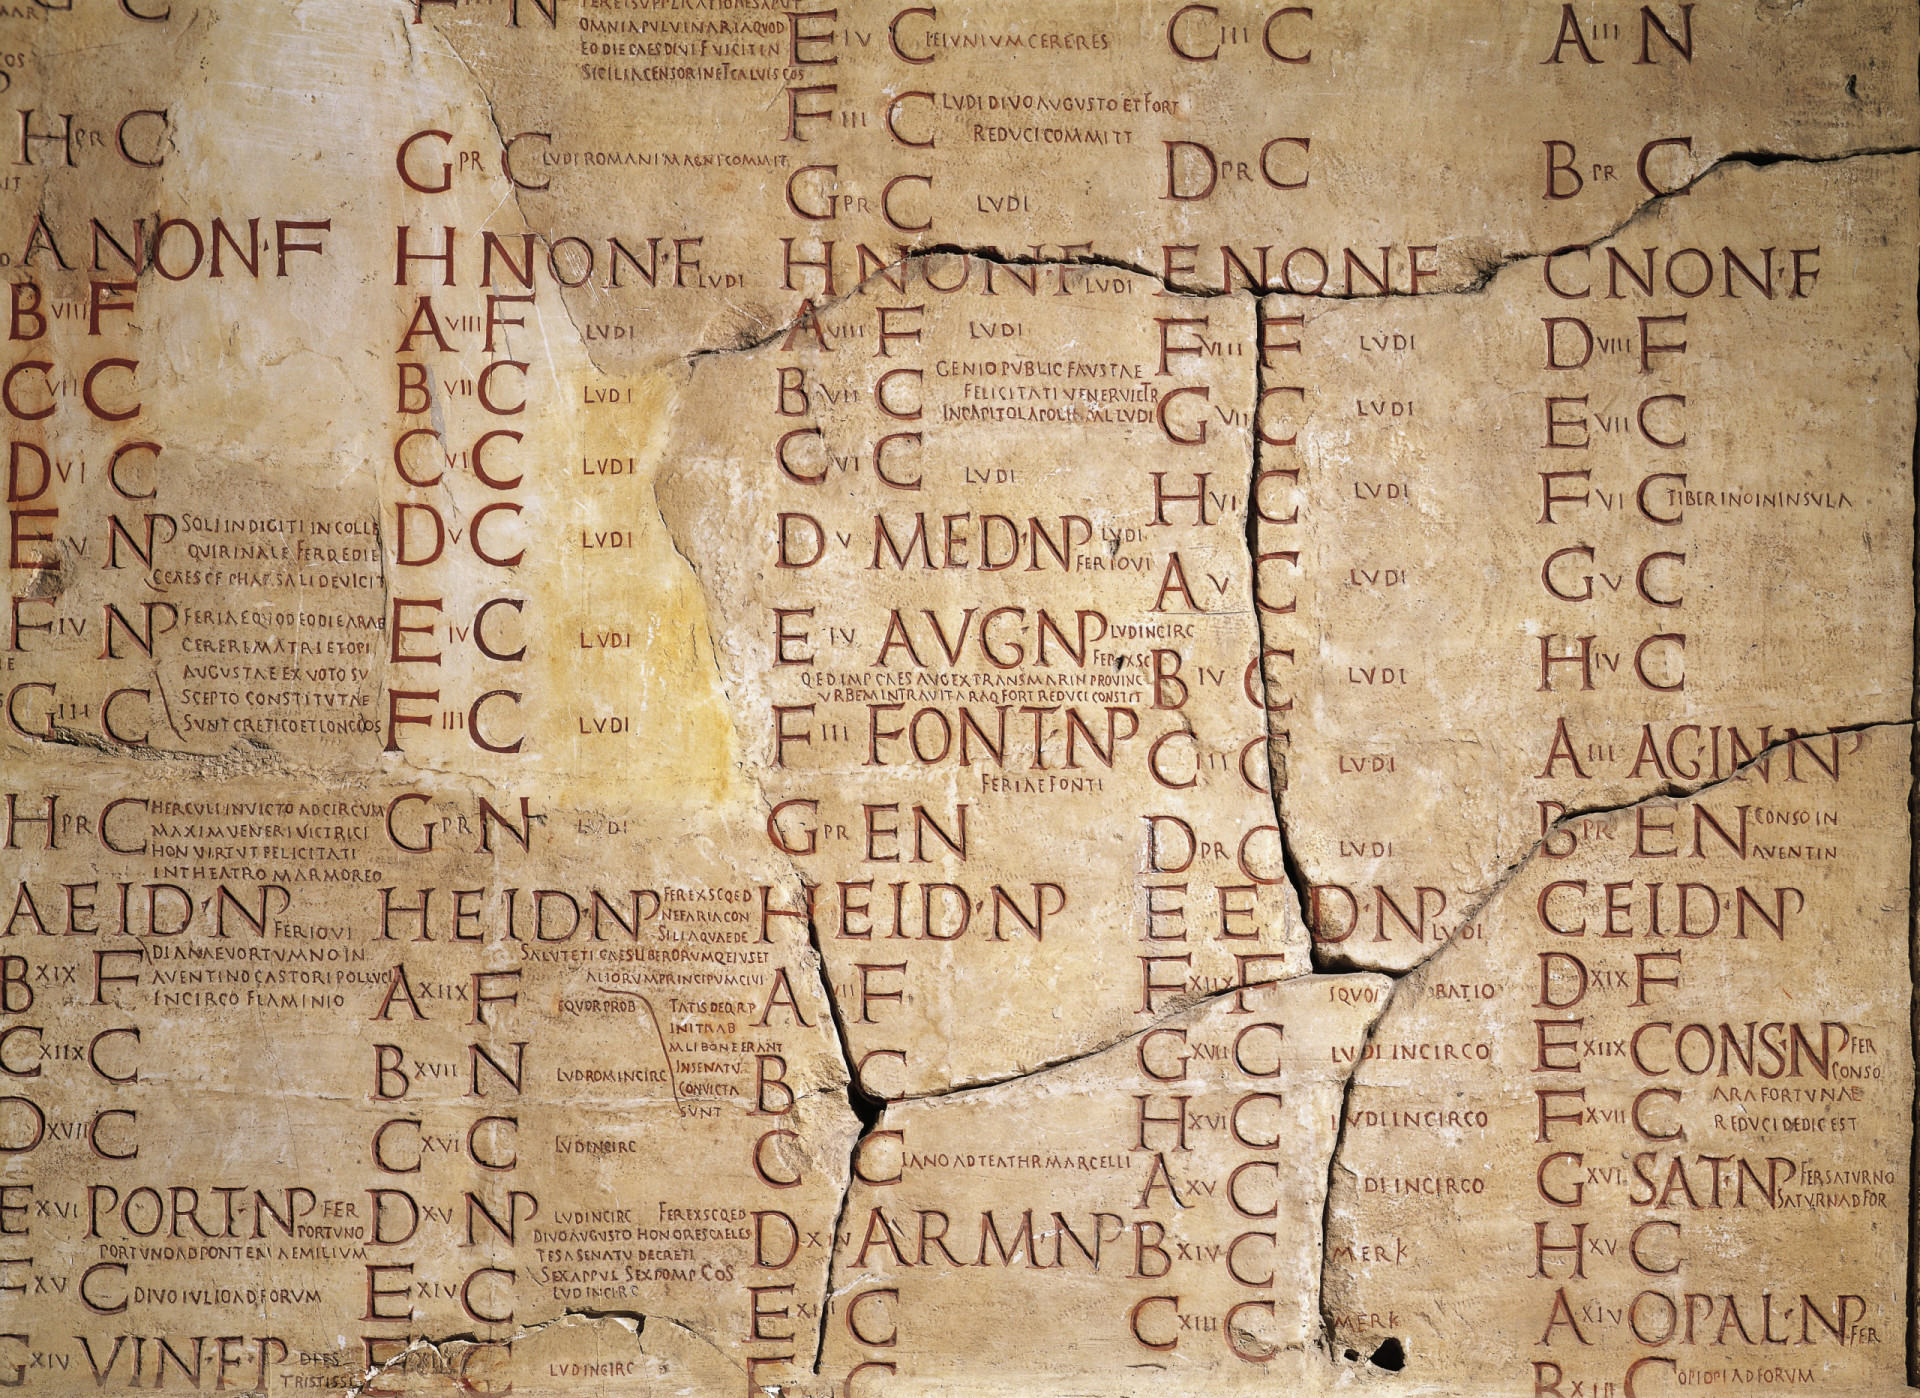 H PR C
A NON·F
B VIII F
C VII C
D VI C
E V NP SOLI INDIGITI IN COLLE
QUIRINALE FER Q E D IE
C CAES C F PHARSALI DEVICIT
F IV NP FERIAE QVOD EO DIE ARAE
CERERI MATRI ET OPI
AVGVSTAE EX VOTO SV
SCEPTO CONSTITVTAE
SVNT CRETICO ET LONG COS
G III C
H PR C HERCVLI INVICTO AD CIRCVM
MAXIM VENERI VICTRICI
HON VIRTVT FELICITATI
IN THEATRO MARMOREO
A EID·NP FER IOVI
DIANAE VORTVMNO IN
B XIX F AVENTINO CASTORI POLLVCI
IN CIRCO FLAMINIO
C XIIX C
D XVII C
E XVI PORT·NP FER
PORTVNO
PORTVNO AD PONTEM AEMILIVM
F XV C DIVO IVLIO AD FORVM
G XIV VIN·F·P DIES
TRISTISSI
OMNIA PVLVINARIA QVOD
EO DIE CAES DIVI F VICIT IN
SICILIA CENSORIN ET CALVIS COS
G PR C LVDI ROMANI MAGNI COMMIT
H NON·F LVDI
A VIII F LVDI
B VII C LVDI
C VI C LVDI
D V C LVDI
E IV C LVDI
F III C LVDI
G PR N LVDI
H EID·NP FER EX S C Q E D
NEFARIA CON
SILIA QVAE DE
SALVTE TI CAES LIBERORVMQ EIVS ET
ALIORVM PRINCIPVM CIVI
A XIIX F EQVOR PROB TATIS DEQ R P
INITA AB
M LIBONE ERANT
B XVII N LVD ROM IN CIRC IN SENATV
CONVICTA
SVNT
C XVI C LVD IN CIRC
D XV NP LVD IN CIRC FER EX S C Q E D
DIVO AVGVSTO HONORES CAELES
TES A SENATV DECRETI
SEX APPVL SEX POMP COS
E XIV C LVD IN CIRC
F XIII C LVD IN CIRC
E IV C IEIVNIVM CERERES
F III C LVDI DIVO AVGVSTO ET FORT
REDVCI COMMITT
G PR C LVDI
H NON·F LVDI
A VIII F LVDI
B VII C GENIO PVBLIC FAVSTAE
FELICITATI VENER VICTR
IN CAPITOL APOLL PAL LVDI
C VI C LVDI
D V MED·NP LVDI
FER IOVI
E IV AVG·NP LVD IN CIRC
FER EX S C
Q E D IMP CAES AVG EX TRANSMARIN PROVINC
VRBEM INTRAVIT ARAQ FORT REDVCI CONSTIT
F III FONT·NP
FERIAE FONTI
G PR EN
H EID·NP
A VII F
B C
C C IANO AD TEATHR MARCELLI
D XIV ARM·NP
E XIII C
C III C
D PR C
E NON·F
F VIII F LVDI
G VII C LVDI
H VI C LVDI
A V C LVDI
B IV C LVDI
C III C LVDI
D PR C LVDI
E EID·NP LVDI
F XIIX F
G XVII C LVDI IN CIRCO
H XVI C LVDI IN CIRCO
A XV C DI IN CIRCO
B XIV C MERK
C XIII C MERK
A III N
B PR C
C NON·F
D VIII F
E VII C
F VI C TIBERINO IN INSVLA
G V C
H IV C
A III AGIN NP
B PR EN CONSO IN
AVENTIN
C EID·NP
D XIX F
E XIIX CONS·NP FER
CONSO
F XVII C ARA FORTVNAE
REDVCI DEDIC EST
G XVI SAT·NP FER SATVRNO
SATVRN AD FOR
H XV C
A XIV OPAL·NP FER
B XIII C OPI AD FORVM